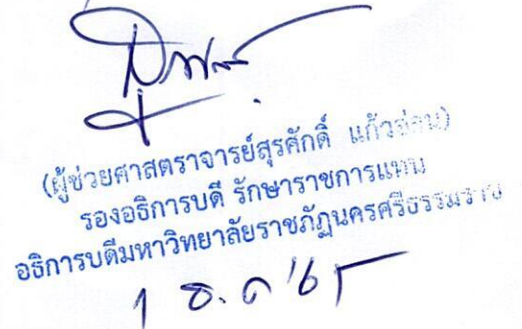 (ผู้ช่วยศาสตราจารย์สุรศักดิ์ แก้วอ่อน)
รองอธิการบดี รักษาราชการแทน
อธิการบดีมหาวิทยาลัยราชภัฏนครศรีธรรมราช
1 ธ.ค 65